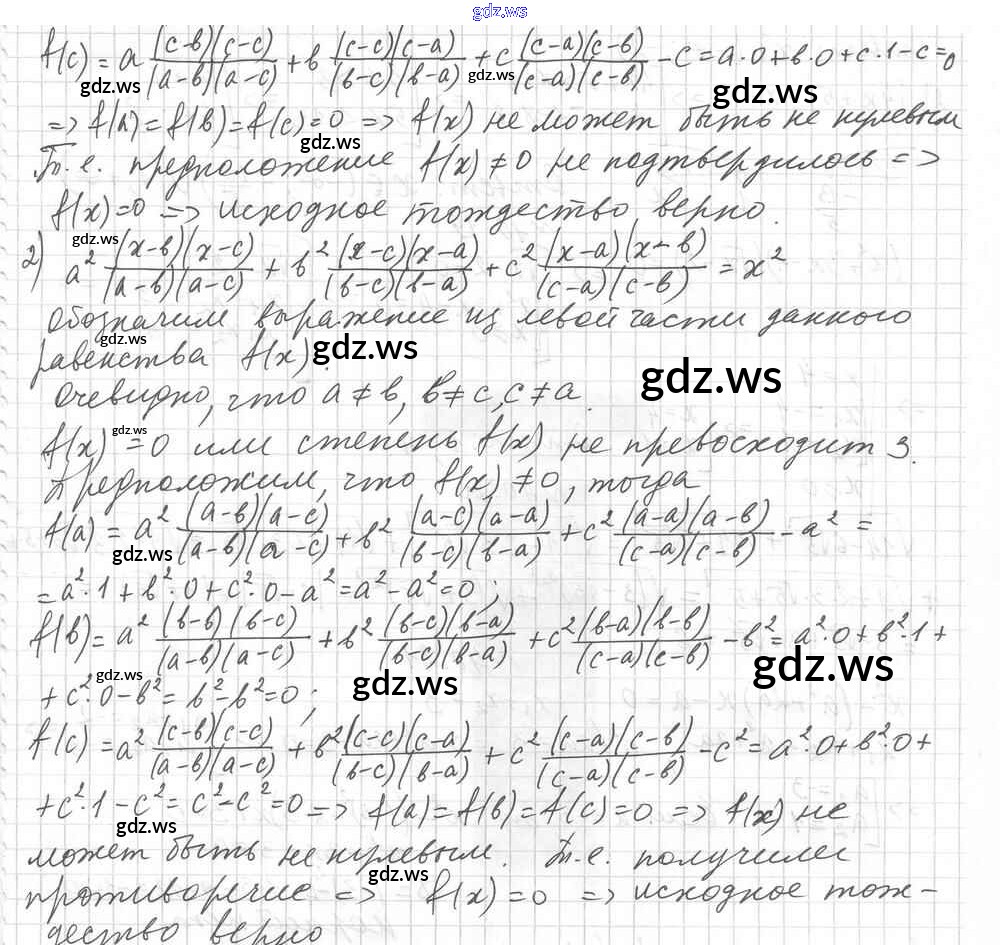 gdz.ws
f(c) = a (c-в)(c-c)/(a-в)(a-c) + в (c-c)(c-a)/(в-c)(в-a) + c (c-a)(c-в)/(c-a)(c-в) - c = a·0+в·0+c·1-c=0
gdz.ws gdz.ws gdz.ws
=> f(a)=f(в)=f(c)=0 => f(x) не может быть не нулевым
gdz.ws
т.е. предположение f(x)≠0 не подтвердилось =>
f(x)=0 => исходное тождество верно.
gdz.ws
2) a² (x-в)(x-c)/(a-в)(a-c) + в² (x-c)(x-a)/(в-c)(в-a) + c² (x-a)(x-в)/(c-a)(c-в) = x²
обозначим выражение из левой части данного
gdz.ws gdz.ws
равенства f(x).
gdz.ws
Очевидно, что a≠в, в≠c, c≠a.
gdz.ws
f(x)=0 или степень f(x) не превосходит 3.
Предположим, что f(x)≠0, тогда
f(a) = a² (a-в)(a-c)/(a-в)(a-c) + в² (a-c)(a-a)/(в-c)(в-a) + c² (a-a)(a-в)/(c-a)(c-в) - a² =
gdz.ws
= a²·1 + в²·0 + c²·0 - a² = a² - a² = 0;
f(в) = a² (в-в)(в-c)/(a-в)(a-c) + в² (в-c)(в-a)/(в-c)(в-a) + c² (в-a)(в-в)/(c-a)(c-в) - в² = a²·0 + в²·1 +
gdz.ws gdz.ws gdz.ws
+ c²·0 - в² = в² - в² = 0;
f(c) = a² (c-в)(c-c)/(a-в)(a-c) + в² (c-c)(c-a)/(в-c)(в-a) + c² (c-a)(c-в)/(c-a)(c-в) - c² = a²·0 + в²·0 +
+ c²·1 - c² = c² - c² = 0 => f(a)=f(в)=f(c)=0 => f(x) не
gdz.ws
может быть не нулевым. т.е. получилсе
gdz.ws
противоречие => f(x)=0 => исходное тож-
дество верно